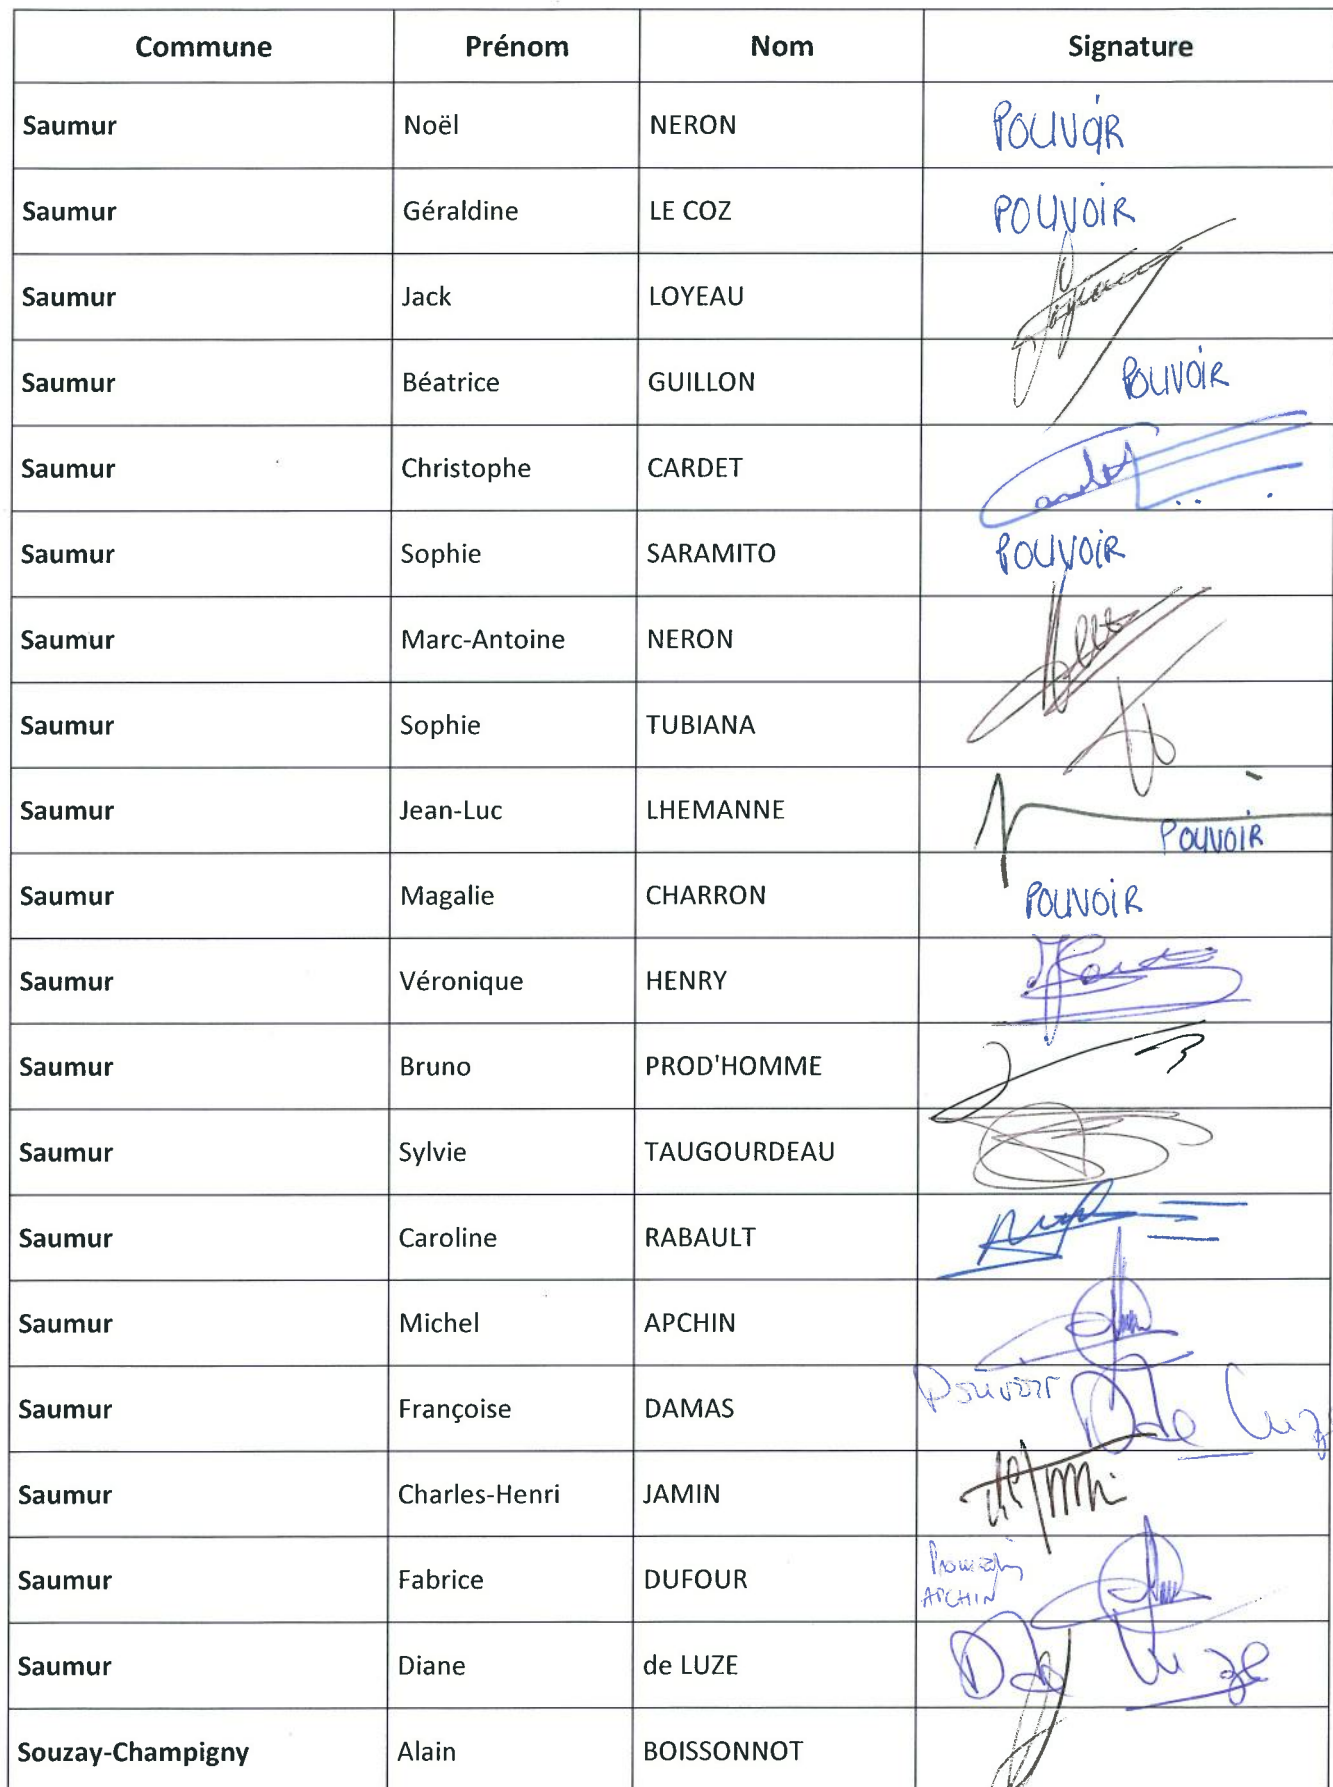 Commune Prénom Nom Signature
Saumur Noël NERON POUVOIR
Saumur Géraldine LE COZ POUVOIR
Saumur Jack LOYEAU
Saumur Béatrice GUILLON POUVOIR
Saumur Christophe CARDET
Saumur Sophie SARAMITO POUVOIR
Saumur Marc-Antoine NERON
Saumur Sophie TUBIANA
Saumur Jean-Luc LHEMANNE POUVOIR
Saumur Magalie CHARRON POUVOIR
Saumur Véronique HENRY
Saumur Bruno PROD'HOMME
Saumur Sylvie TAUGOURDEAU
Saumur Caroline RABAULT
Saumur Michel APCHIN
Saumur Françoise DAMAS Pouvoir D de Luze
Saumur Charles-Henri JAMIN
Saumur Fabrice DUFOUR APCHIN
Saumur Diane de LUZE D de Luze
Souzay-Champigny Alain BOISSONNOT